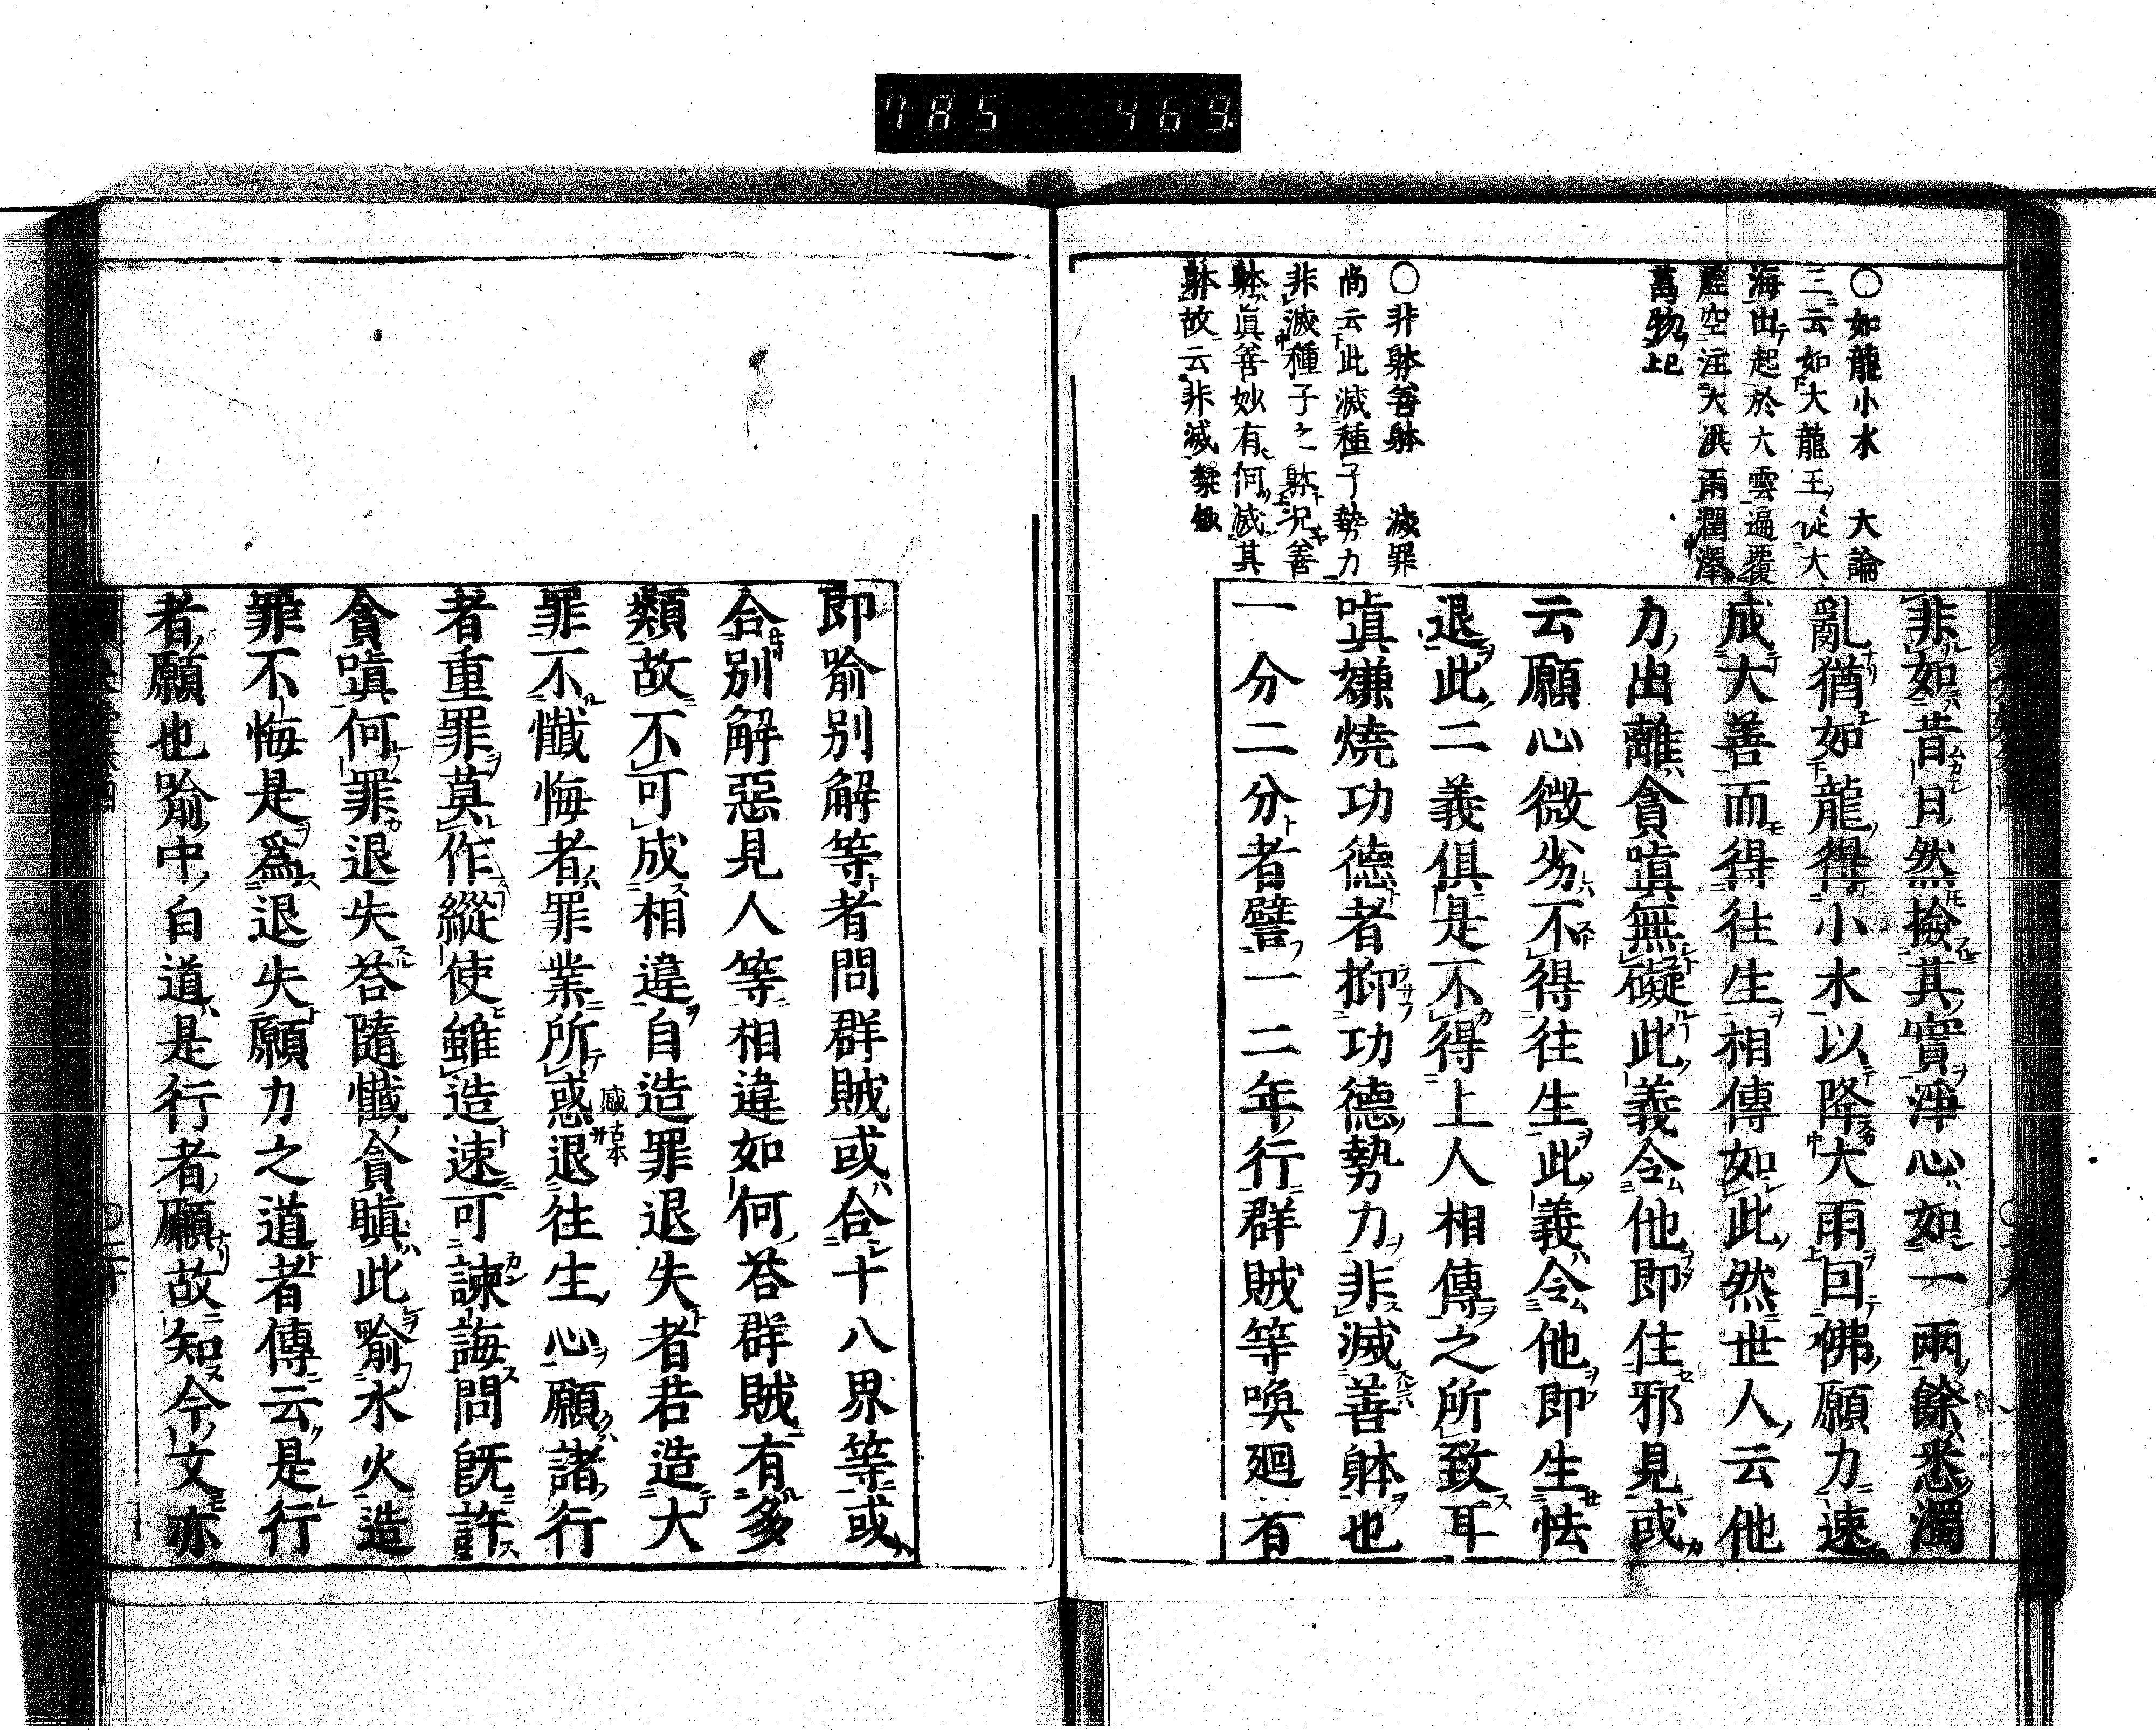 785 469
〇如龍小水 大論
三云如大龍王從大
海出起於大雲遍覆
虚空注大洪雨潤澤
萬物已上
〇非躰善躰 滅罪
尚云此滅種子勢力
非滅種子之躰况善
躰眞善妙有何滅其
躰故云非滅
非如昔日然撿其實淨心如一兩餘悉濁
亂猶如龍得小水以降大雨囙佛願力速
成大善而得往生相傳如此然世人云他
力出離貪嗔無礙此義令他即住邪見或
云願心微劣不得往生此義令他即生怯
退此二義俱是不得上人相傳之所致耳
嗔嫌燒功德者抑功德勢力非滅善躰也
一分二分者譬一二年行群賊等喚廻有
即喩別解等者問群賊或合十八界等或
合別解惡見人等相違如何荅群賊有多
類故不可成相違自造罪退失者若造大
罪不懺悔者罪業所惑退往生心願諸行
感古本
者重罪莫作縱使雖造速可諫誨問既許
貪嗔何罪退失荅隨懺貪瞋此喩水火造
罪不悔是爲退失願力之道者傳云是行
者願也喩中白道是行者願故知今文亦